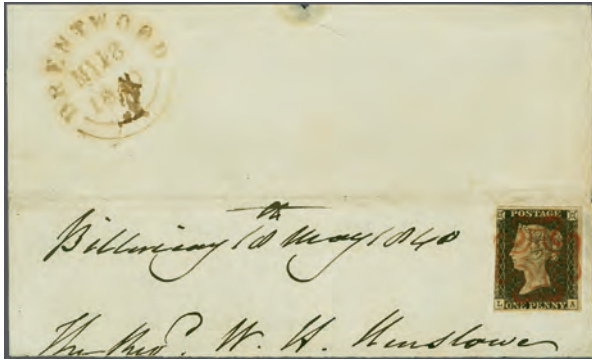 BRENTWOOD
MY 18
1840
Billericay 18th May 1840
POSTAGE
L A
ONE PENNY
The Revd. W. H. Henslowe